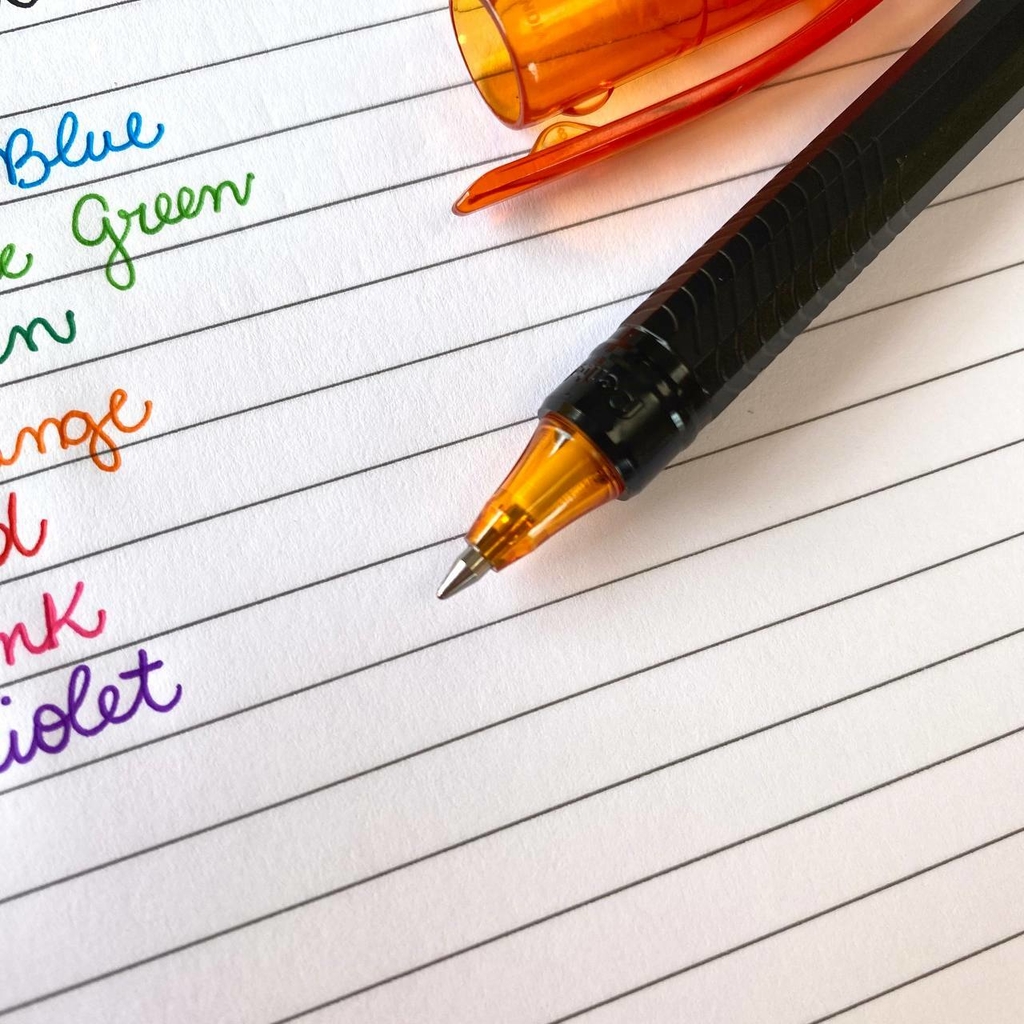 Blue
e Green
n
nge
d
nk
iolet